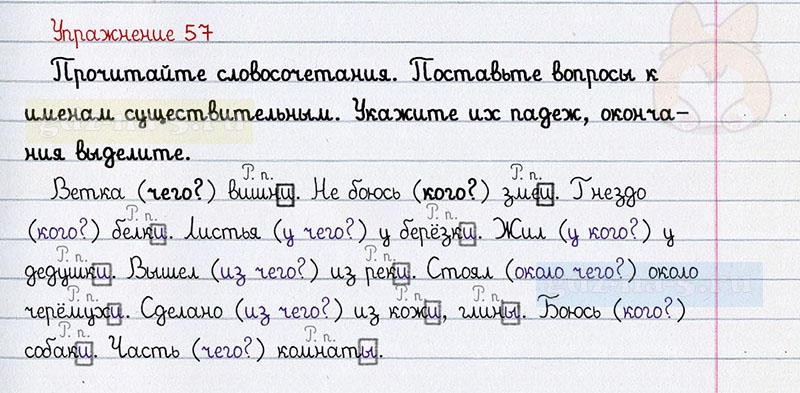 Упражнение 57
Прочитайте словосочетания. Поставьте вопросы к
именам существительным. Укажите их падеж, оконча-
ния выделите.
Р. п. Р. п.
Ветка (чего?) вишни. Не боюсь (кого?) змеи. Гнездо
Р. п. Р. п.
(кого?) белки. Листья (у чего?) у берёзки. Жил (у кого?) у
Р. п. Р. п.
дедушки. Вышел (из чего?) из реки. Стоял (около чего?) около
Р. п. Р. п. Р. п.
черёмухи. Сделано (из чего?) из кожи, глины. Боюсь (кого?)
Р. п. Р. п.
собаки. Часть (чего?) комнаты.